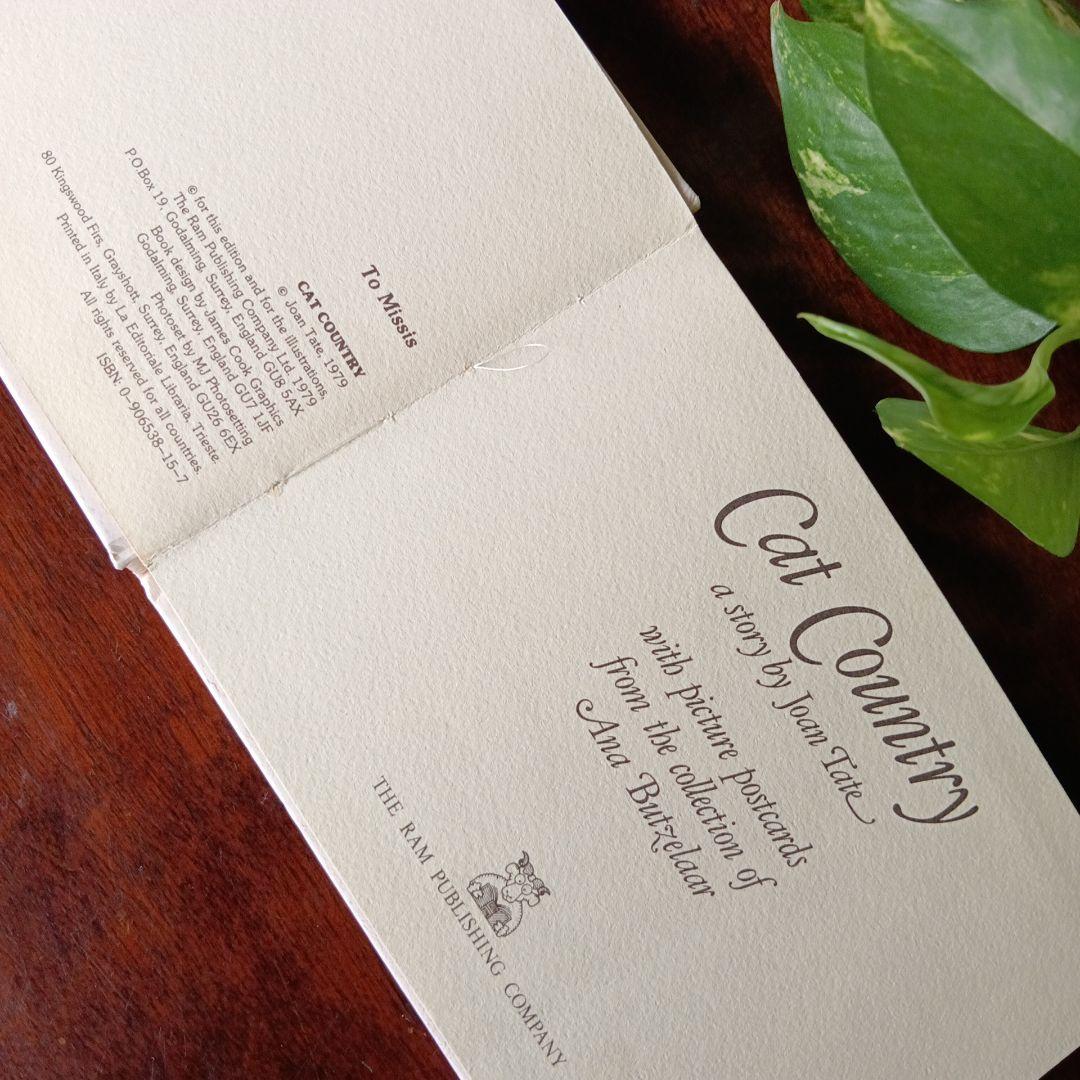 To Missis
CAT COUNTRY
© Joan Tate, 1979
© for this edition and for the illustrations,
The Ram Publishing Company Ltd. 1979
P.O.Box 19, Godalming, Surrey, England GU8 5AX
Book design by James Cook Graphics
Godalming, Surrey, England GU7 1JF
Photoset by MJ Photosetting
80 Kingswood Firs, Grayshott, Surrey, England GU26 6EX
Printed in Italy by La Editoriale Libraria, Trieste.
All rights reserved for all countries.
ISBN: 0-906538-15-7
Cat Country
a story by Joan Tate
with picture postcards
from the collection of
Ana Butzelaar
THE RAM PUBLISHING COMPANY